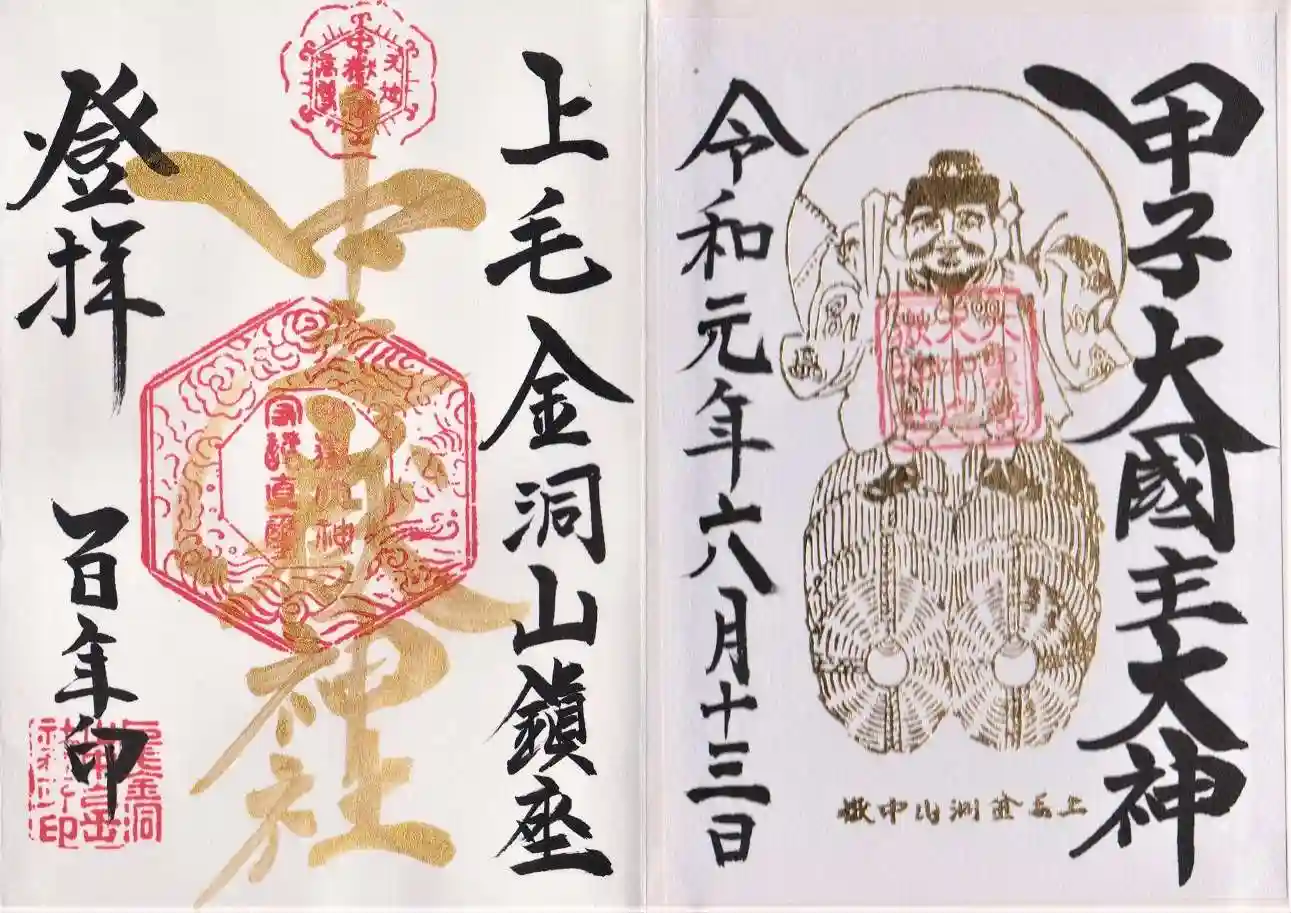 甲子大國主大神
令和元年六八月十三日
上毛金洞山中嶽
上毛金洞山鎮座
中之嶽神社
登拝
百年印